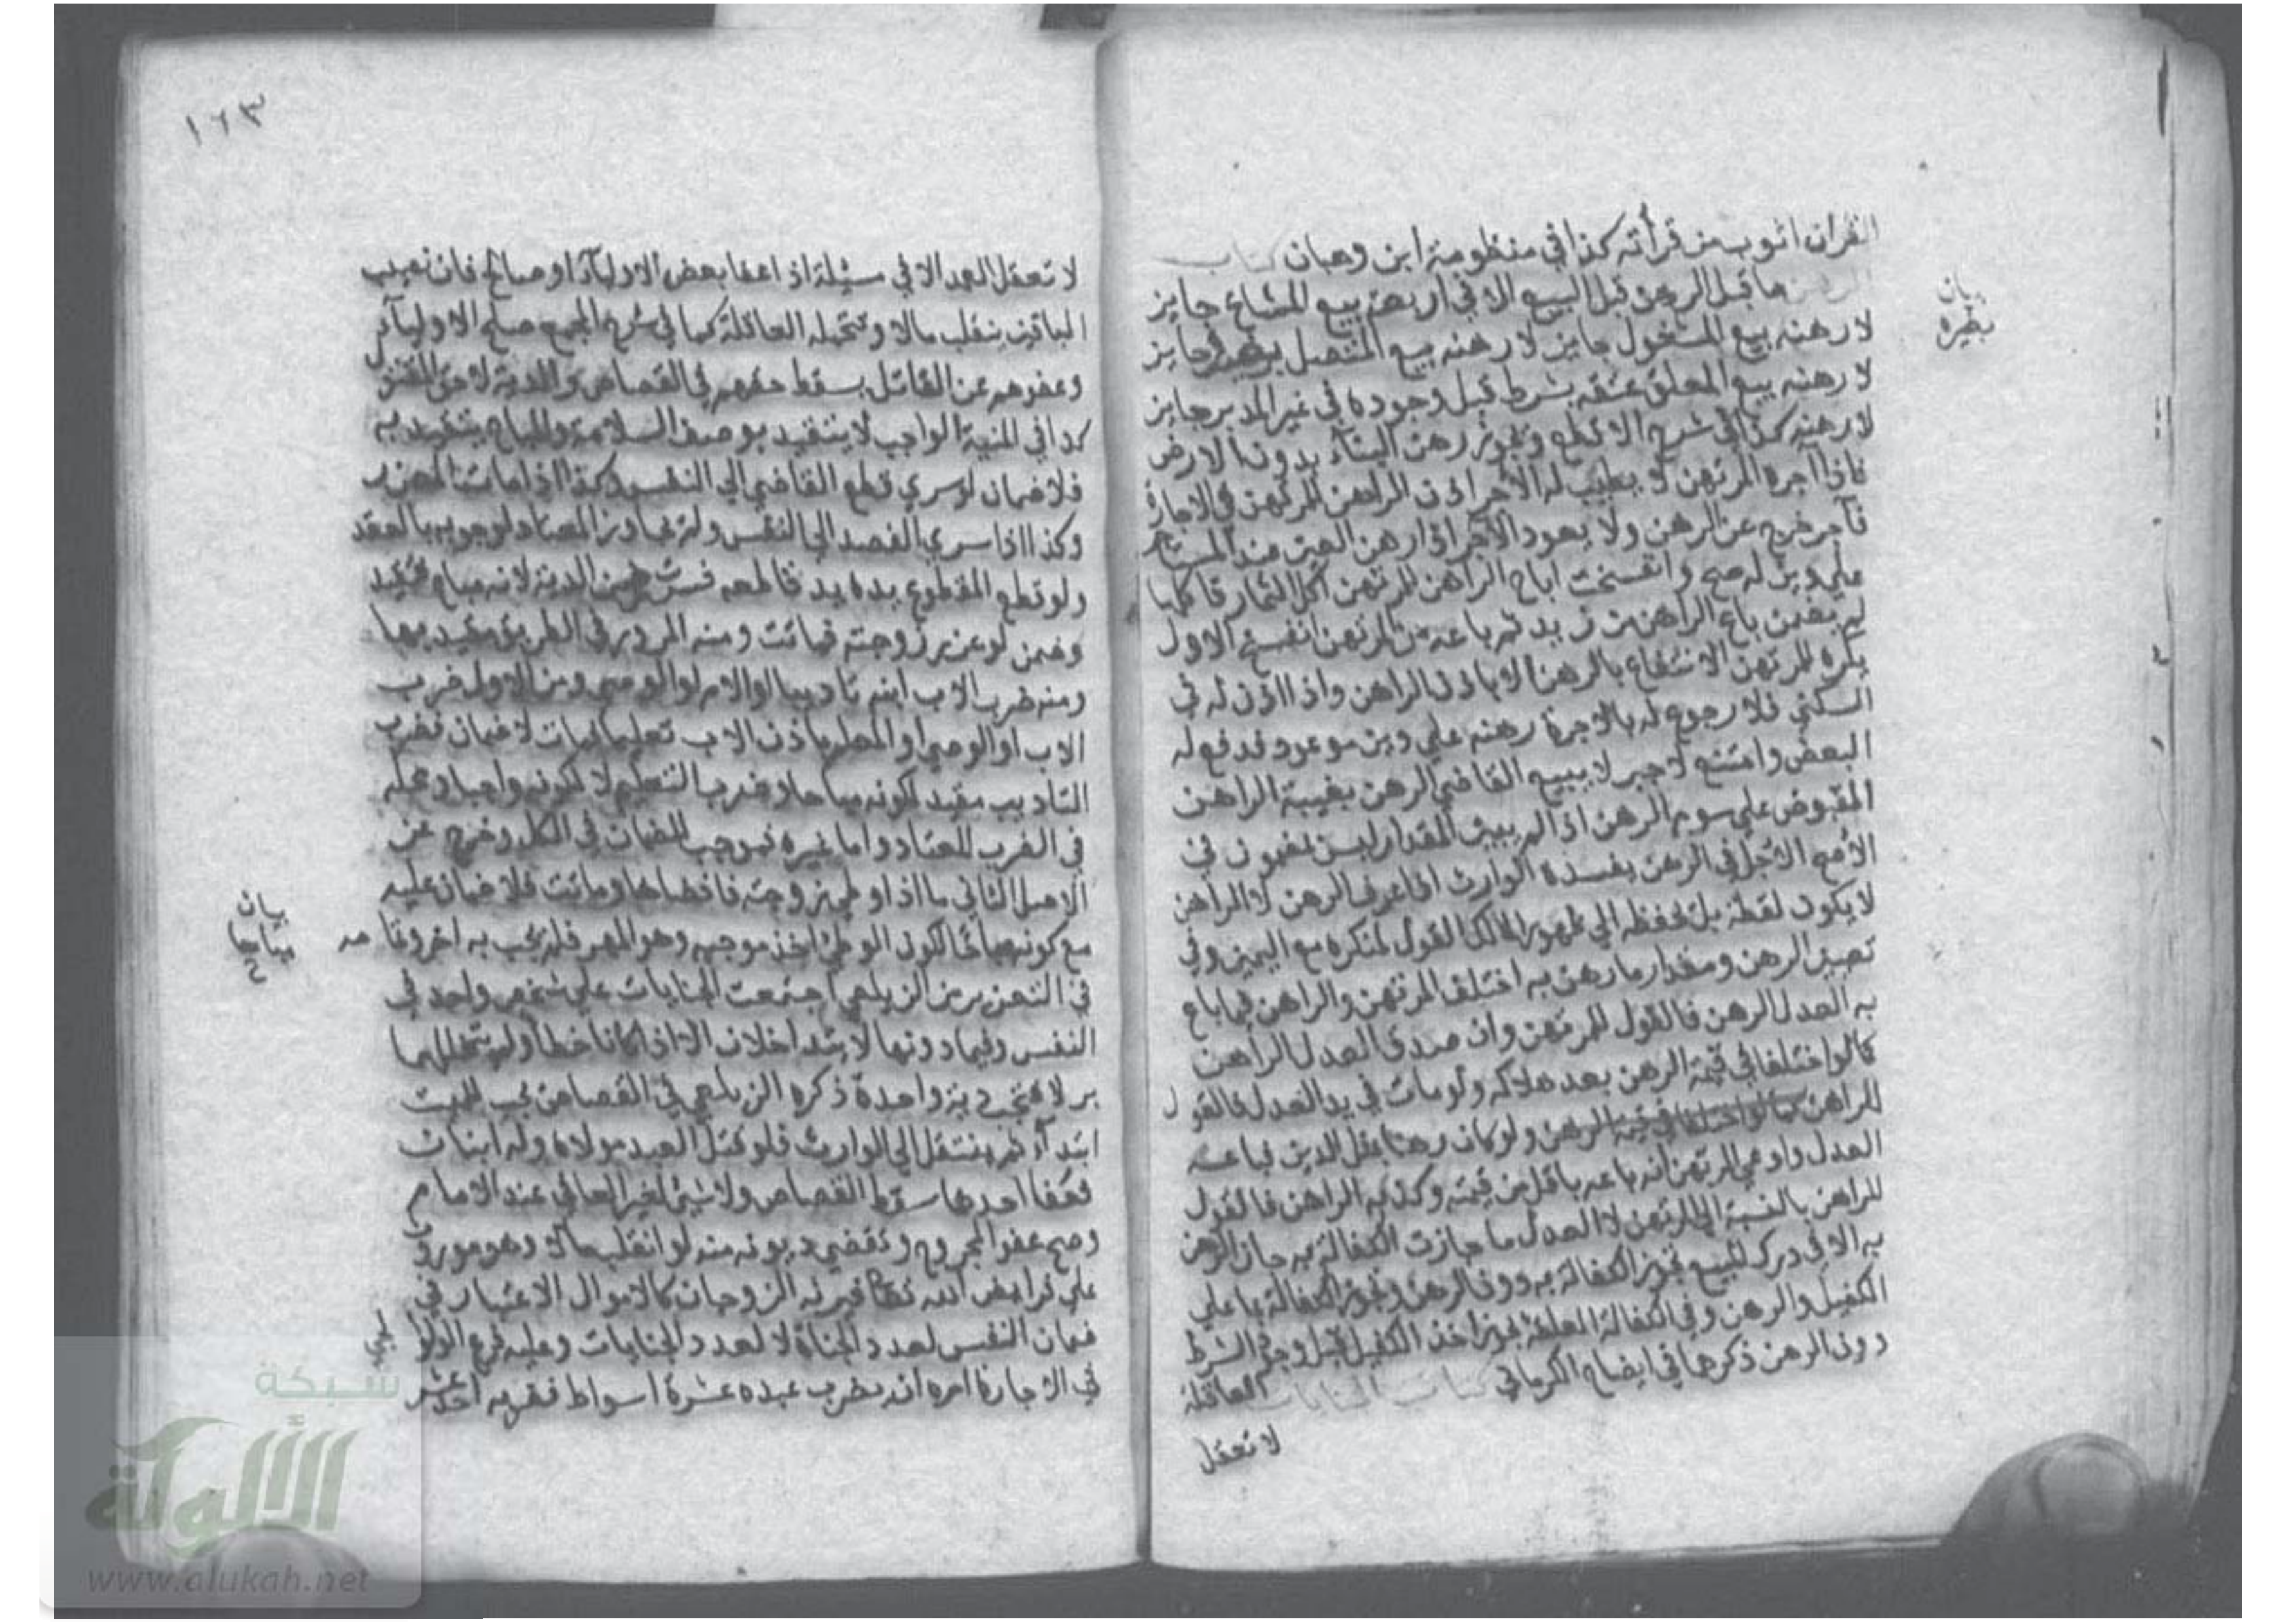 القران اثوب من قرأته كذا في منظومة ابن وهبان كتاب
الرهن ما قبل الرهن قبل البيع الا في اربعة بيع المشاع جايز
لا رهنه بيع المشغول جايز لا رهنه بيع المتصل بغيره جايز
لا رهنه بيع المعلق عتقه بشرط قبل وجوده في غير المدبر جايز
لا رهنه كذا في شرح الاقطع ويجوز رهن البناء بدون الارض
فاذا اجره المرتهن لا يطيب له الاجر اذن الراهن للمرتهن في الاجارة
فآجر خرج عن الرهن ولا يعود الآجر اذا رهن العين عند المستاجر
علي دين له صح وانفسخت اباح الراهن للمرتهن اكل الثمار فاكلها
لم يضمن باع الراهن من زيد ثم باعه من المرتهن انفسخ الاول
يكره للمرتهن الانتفاع بالرهن الا باذن الراهن واذا اذن له في
السكني فلا رجوع له بالاجرة رهنه علي دين موعود فدفع له
البعض وامتنع لا جبر لا يبيع القاضي الرهن بغيبة الراهن
المقبوض علي سوم الرهن اذا لم يبين المقدار ليس بمضمون في
الاصح الاجل في الرهن يفسده الوارث اذا عرف الرهن لا الراهن
لا يكون لقطة بل يحفظه الي ظهور المالك القول لمنكره مع اليمين وفي
تعيين الرهن ومقدار ما رهن به اختلف المرتهن والراهن فيما باع
به العدل الرهن فالقول للمرتهن وان صدق العدل الراهن
كما لو اختلفا في قيمة الرهن بعد هلاكه ولو مات في يد العدل فالقول
للراهن كما لو اختلفا في قيمة الرهن ولو كان رهنا بمثل الدين فباعه
العدل وادعي المرتهن انه باعه باقل من قيمته وكذبه الراهن فالقول
للراهن بالنسبة الي المرتهن لا العدل ما جازت الكفالة به جاز الرهن
به الا في درك المبيع تجوز الكفالة به دون الرهن وتجوز الكفالة بما علي
الكفيل والرهن وفي الكفالة المعلقة يجوز اخذ الكفيل قبل وجود الشرط
دون الرهن ذكرها في ايضاح الكرماني كتاب الجنايات العاقلة
لا تعقل
بيان
نظيره
١٦٣
لا تعقل العمد الا في مسئلة اذا عفا بعض الاولياء او صالح فان نصيب
الباقين ينقلب مالا وتتحمله العاقلة كما في شرح المجمع صلح الاولياء
وعفوهم عن القاتل يسقط حقهم في القصاص والدية لا حق المقتول
كذا في المنية الواجب لا يتقيد بوصف السلامة والمباح يتقيد به
فلا ضمان لو سري قطع القاضي الي النفس وكذا اذا مات المعزر
وكذا اذا سري الفصد الي النفس ولم يجاوز المعتاد لوجوبه بالعقد
ولو قطع المقطوع يده يد قاطعه فسرت ضمن الدية لانه مباح فيتقيد
وضمن لو عزر زوجته فماتت ومنه المرور في الطريق مقيد بها
ومنه ضرب الاب ابنه تاديبا او الام او الوصي ومن الاول ضرب
الاب او الوصي او المعلم باذن الاب تعليما فمات لا ضمان فضرب
التاديب مقيد لكونه مباحا وضرب التعليم لا لكونه واجبا ومحله
في الضرب المعتاد واما غيره فموجب للضمان في الكل وخرج عن
الاصل الثاني ما اذا وطي زوجته فافضاها وماتت فلا ضمان عليه
مع كونه مباحا لكون الوطئ اخذ موجبه وهو المهر فلم يجب به اخر وتمامه
في التعزير من الزيلعي اجتمعت الجنايات علي شخص واحد في
النفس وفيما دونها لا يتداخلان الا اذا كانا خطأ ولم يتخللهما
بر لا فتجب دية واحدة ذكره الزيلعي في القصاص يجب للميت
ابتداء ثم ينتقل الي الوارث فلو قتل العبد مولاه وله ابنان
فعفا احدهما سقط القصاص ولا شيئ لغير العافي عند الامام
وصح عفو المجروح وتقضي ديونه منه لو انقلب مالا وهو موروث
علي فرايض الله تعالي فيرثه الزوجان كالاموال الاعتبار في
ضمان النفس لعدد الجناة لا لعدد الجنايات وعليه فرع الولوالجي
في الاجارة امره انه يضرب عبده عشرة اسواط فضربه احد عشر
بيان
مباحا
شبكة
الألوكة
www.alukah.net